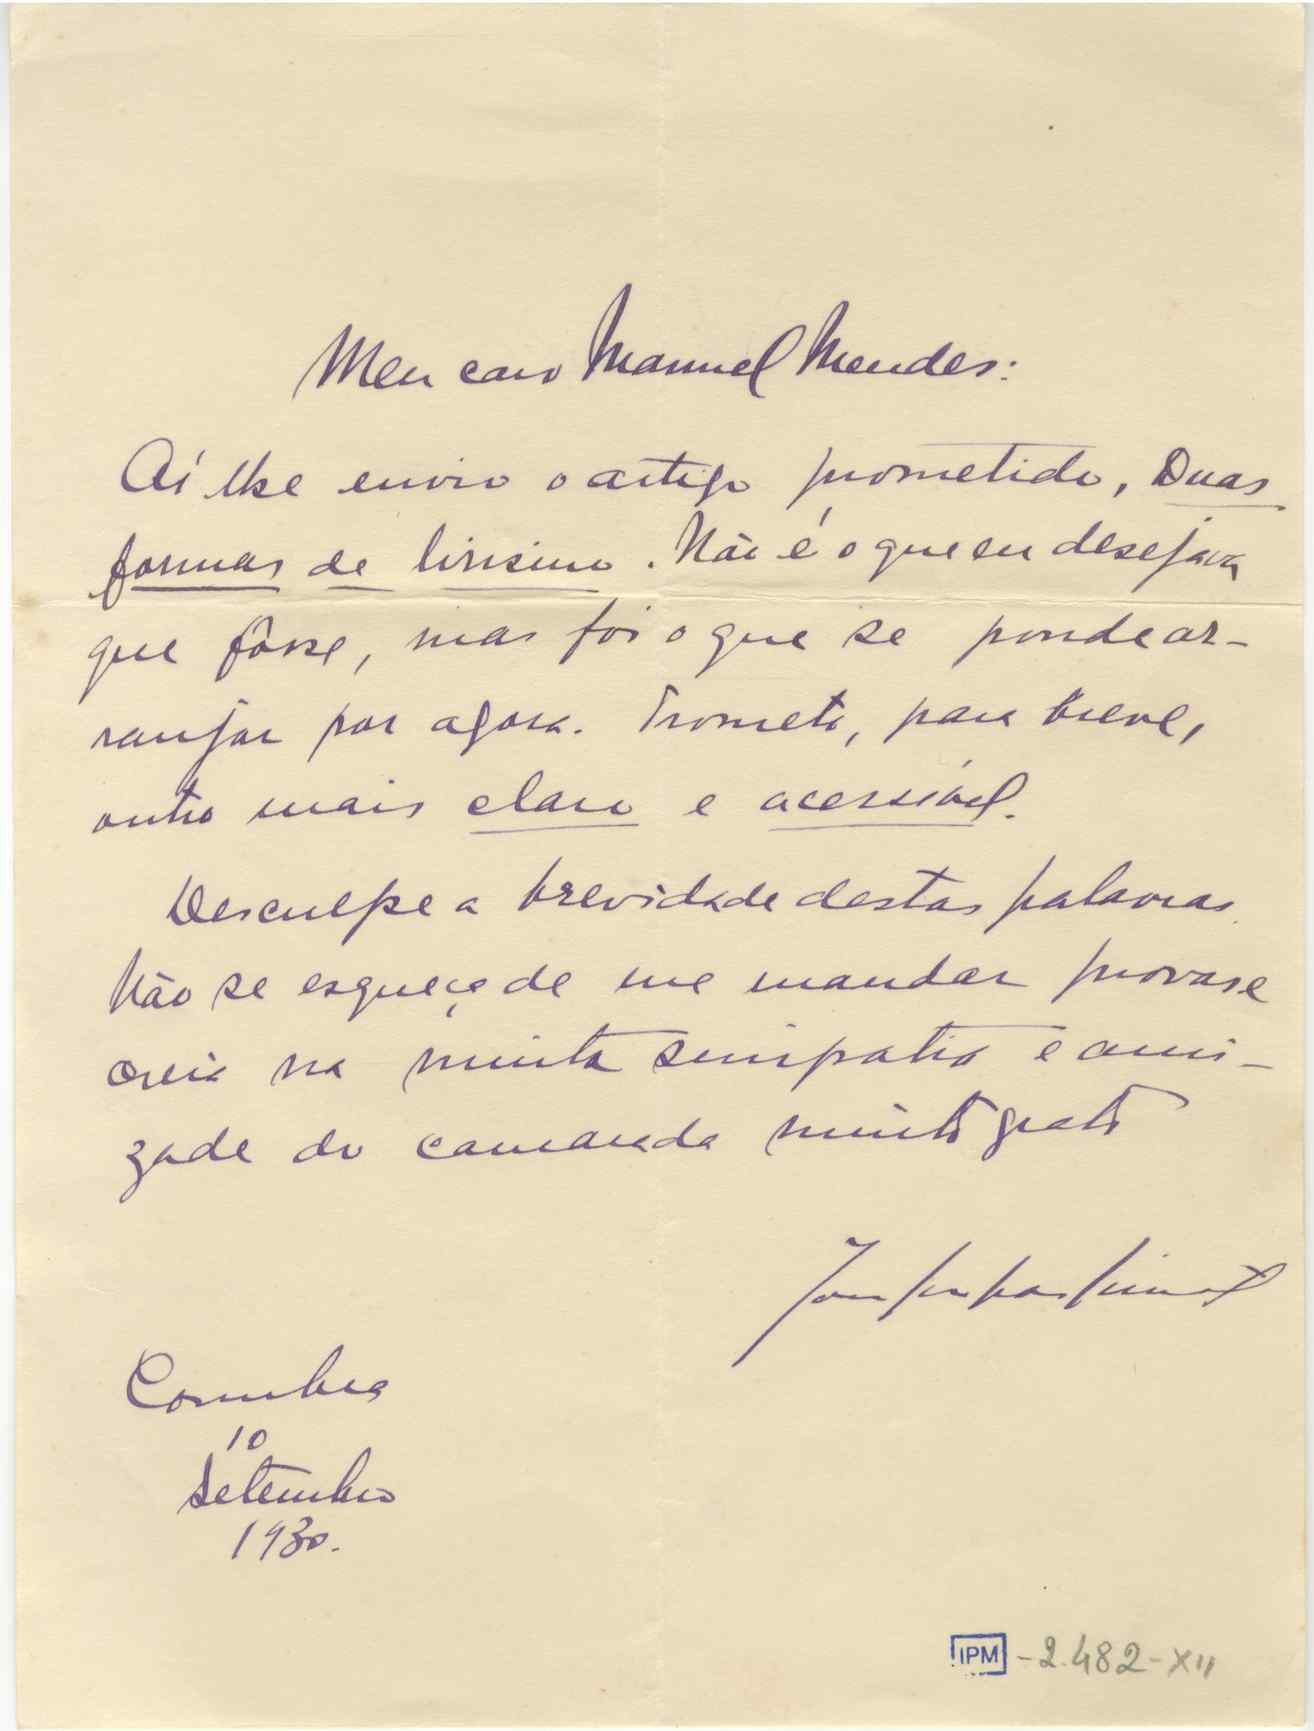 Meu caro Manuel Mendes:
Aí lhe envio o artigo prometido, Duas
formas de lirismo. Não é o que eu desejava
que fôsse, mas foi o que se poude ar-
ranjar por agora. Prometo, para breve,
outro mais claro e acessível.
Desculpe a brevidade destas palavras.
Não se esqueça de me mandar provas e
creia na minha simpatia e ami-
zade do camarada muito grato
João Gaspar Simões
Coimbra
10
Setembro
1930.
IPM - 2.482-XII